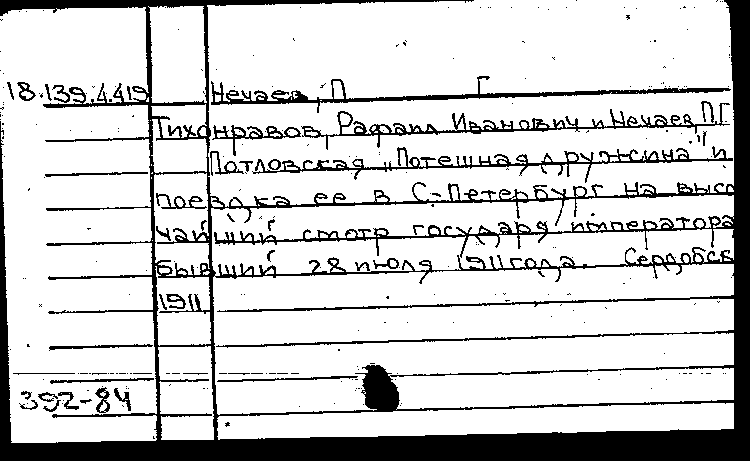 18.139.4.419 Нечаев, П Г
Тихонравов, Рафаил Иванович и Нечаев, П.Г
Потловская „Потешная дружина" и
поездка ее в С-Петербург на высо
чайший смотр государя императора
бывший 28 июля 1911 года. Сердобск
1911
392-84